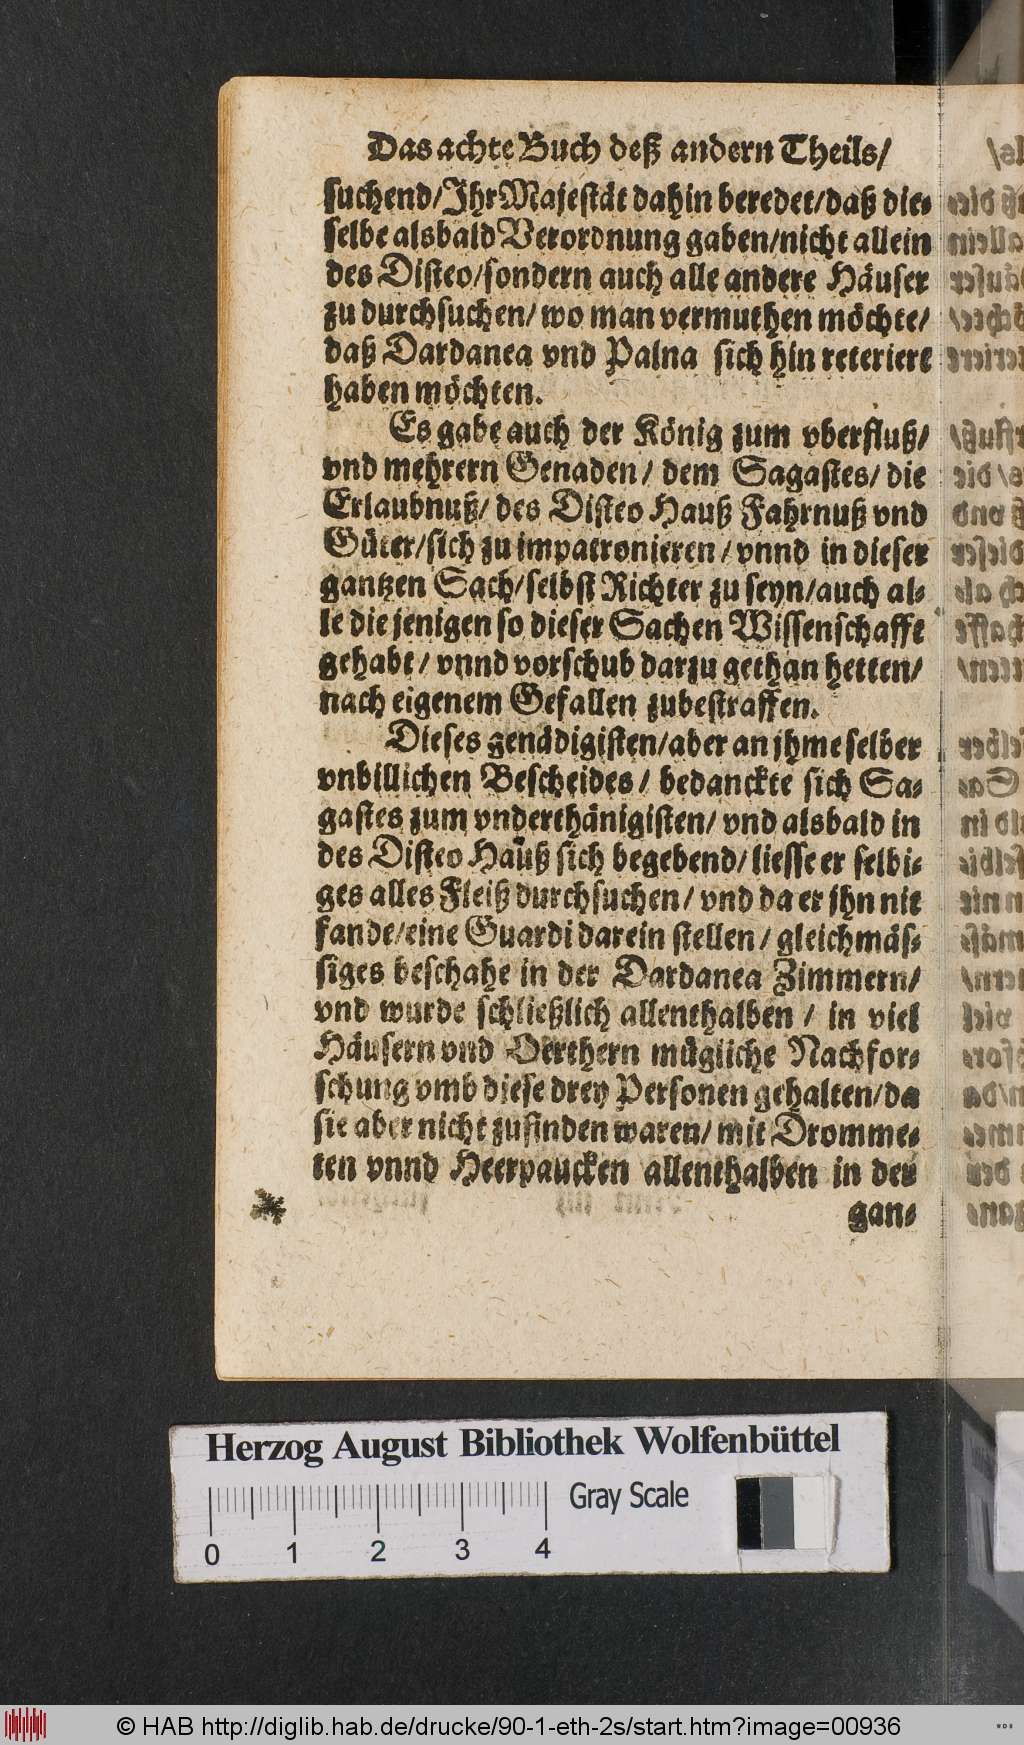 Das achte Buch deß andern Theils/
suchend/Ihr Majestät dahin beredet/daß die-
selbe alsbald Verordnung gaben/nicht allein
des Disteo/sondern auch alle andere Häuser
zu durchsuchen/wo man vermuthen möchte/
daß Dardanea vnd Palna sich hin reteriert
haben möchten.
Es gabe auch der König zum vberfluß/
vnd mehrern Genaden/ dem Sagastes/ die
Erlaubnuß/ des Disteo Hauß Fahrnuß vnd
Güter/sich zu impatronieren/vnnd in dieser
gantzen Sach/selbst Richter zu seyn/auch al-
le die jenigen so dieser Sachen Wissenschafft
gehabt/ vnnd vorschub darzu gethan hetten/
nach eigenem Gefallen zubestraffen.
Dieses genädigisten/aber an jhme selber
vnbillichen Bescheides/ bedanckte sich Sa-
gastes zum vnderthänigisten/ vnd alsbald in
des Disteo Hauß sich begebend/liesse er selbi-
ges alles Fleiß durchsuchen/ vnd da er jhn nit
fande/eine Guardi darein stellen/ gleichmäs-
siges beschahe in der Dardanea Zimmern/
vnd wurde schließlich allenthalben/ in viel
Häusern vnd Oerthern mügliche Nachfor-
schung vmb diese drey Personen gehalten/da
sie aber nicht zufinden waren/mit Dromme-
ten vnnd Heerpaucken allenthalben in der
gan-
Herzog August Bibliothek Wolfenbüttel
Gray Scale
0 1 2 3 4
© HAB http://diglib.hab.de/drucke/90-1-eth-2s/start.htm?image=00936